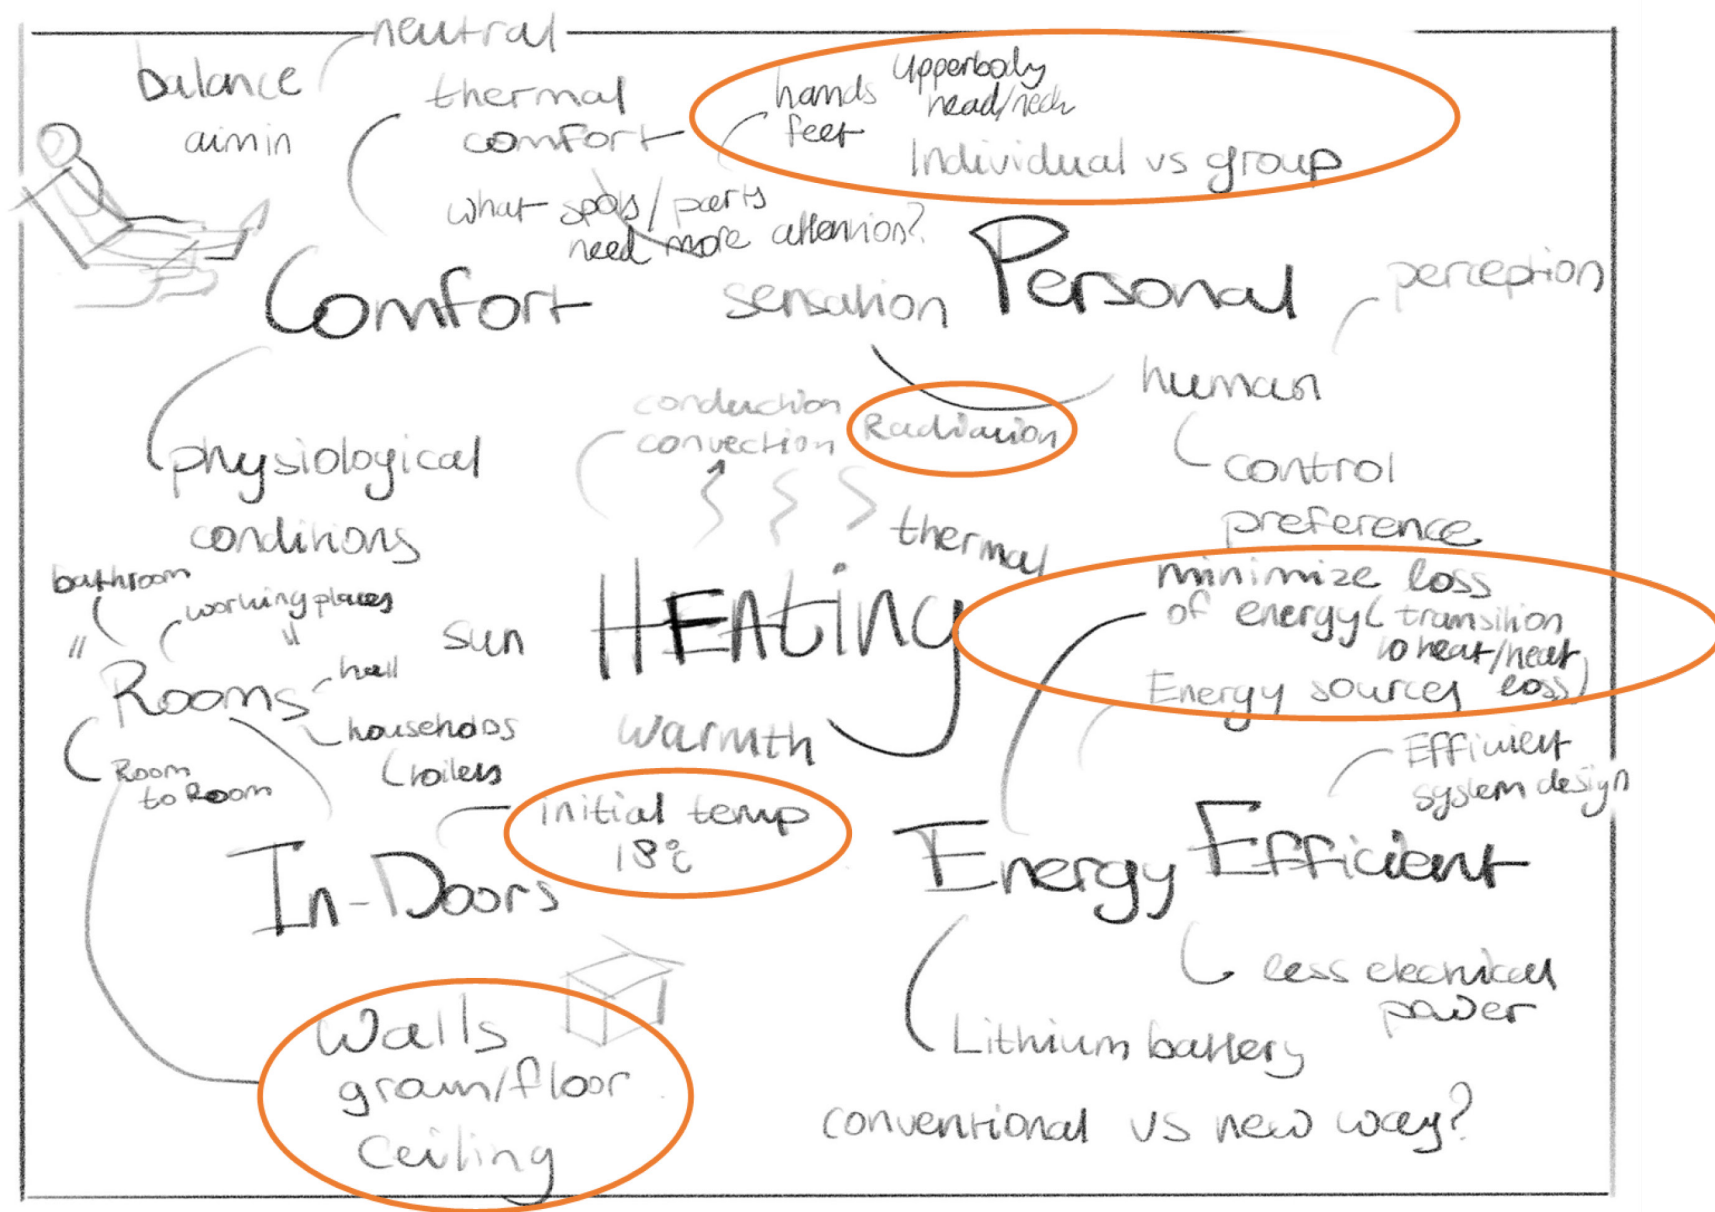 neutral
balance
aimin
thermal
comfort
hands
feet
Upperbody
head/neck
Individual vs group
what spots/parts
need more attention?
Comfort
sensation
Personal
perception
human
control
preference
conduction
convection
Radiation
physiological
conditions
thermal
HEATING
sun
warmth
bathroom
working places
Rooms
hall
households
toilets
Room
to Room
minimize loss
of energy (transition
to heat/heat
loss)
Energy sources
Efficient
system design
initial temp
18°C
In-Doors
Energy Efficient
less electrical
power
Lithium battery
conventional vs new way?
Walls
/floor
Ceiling